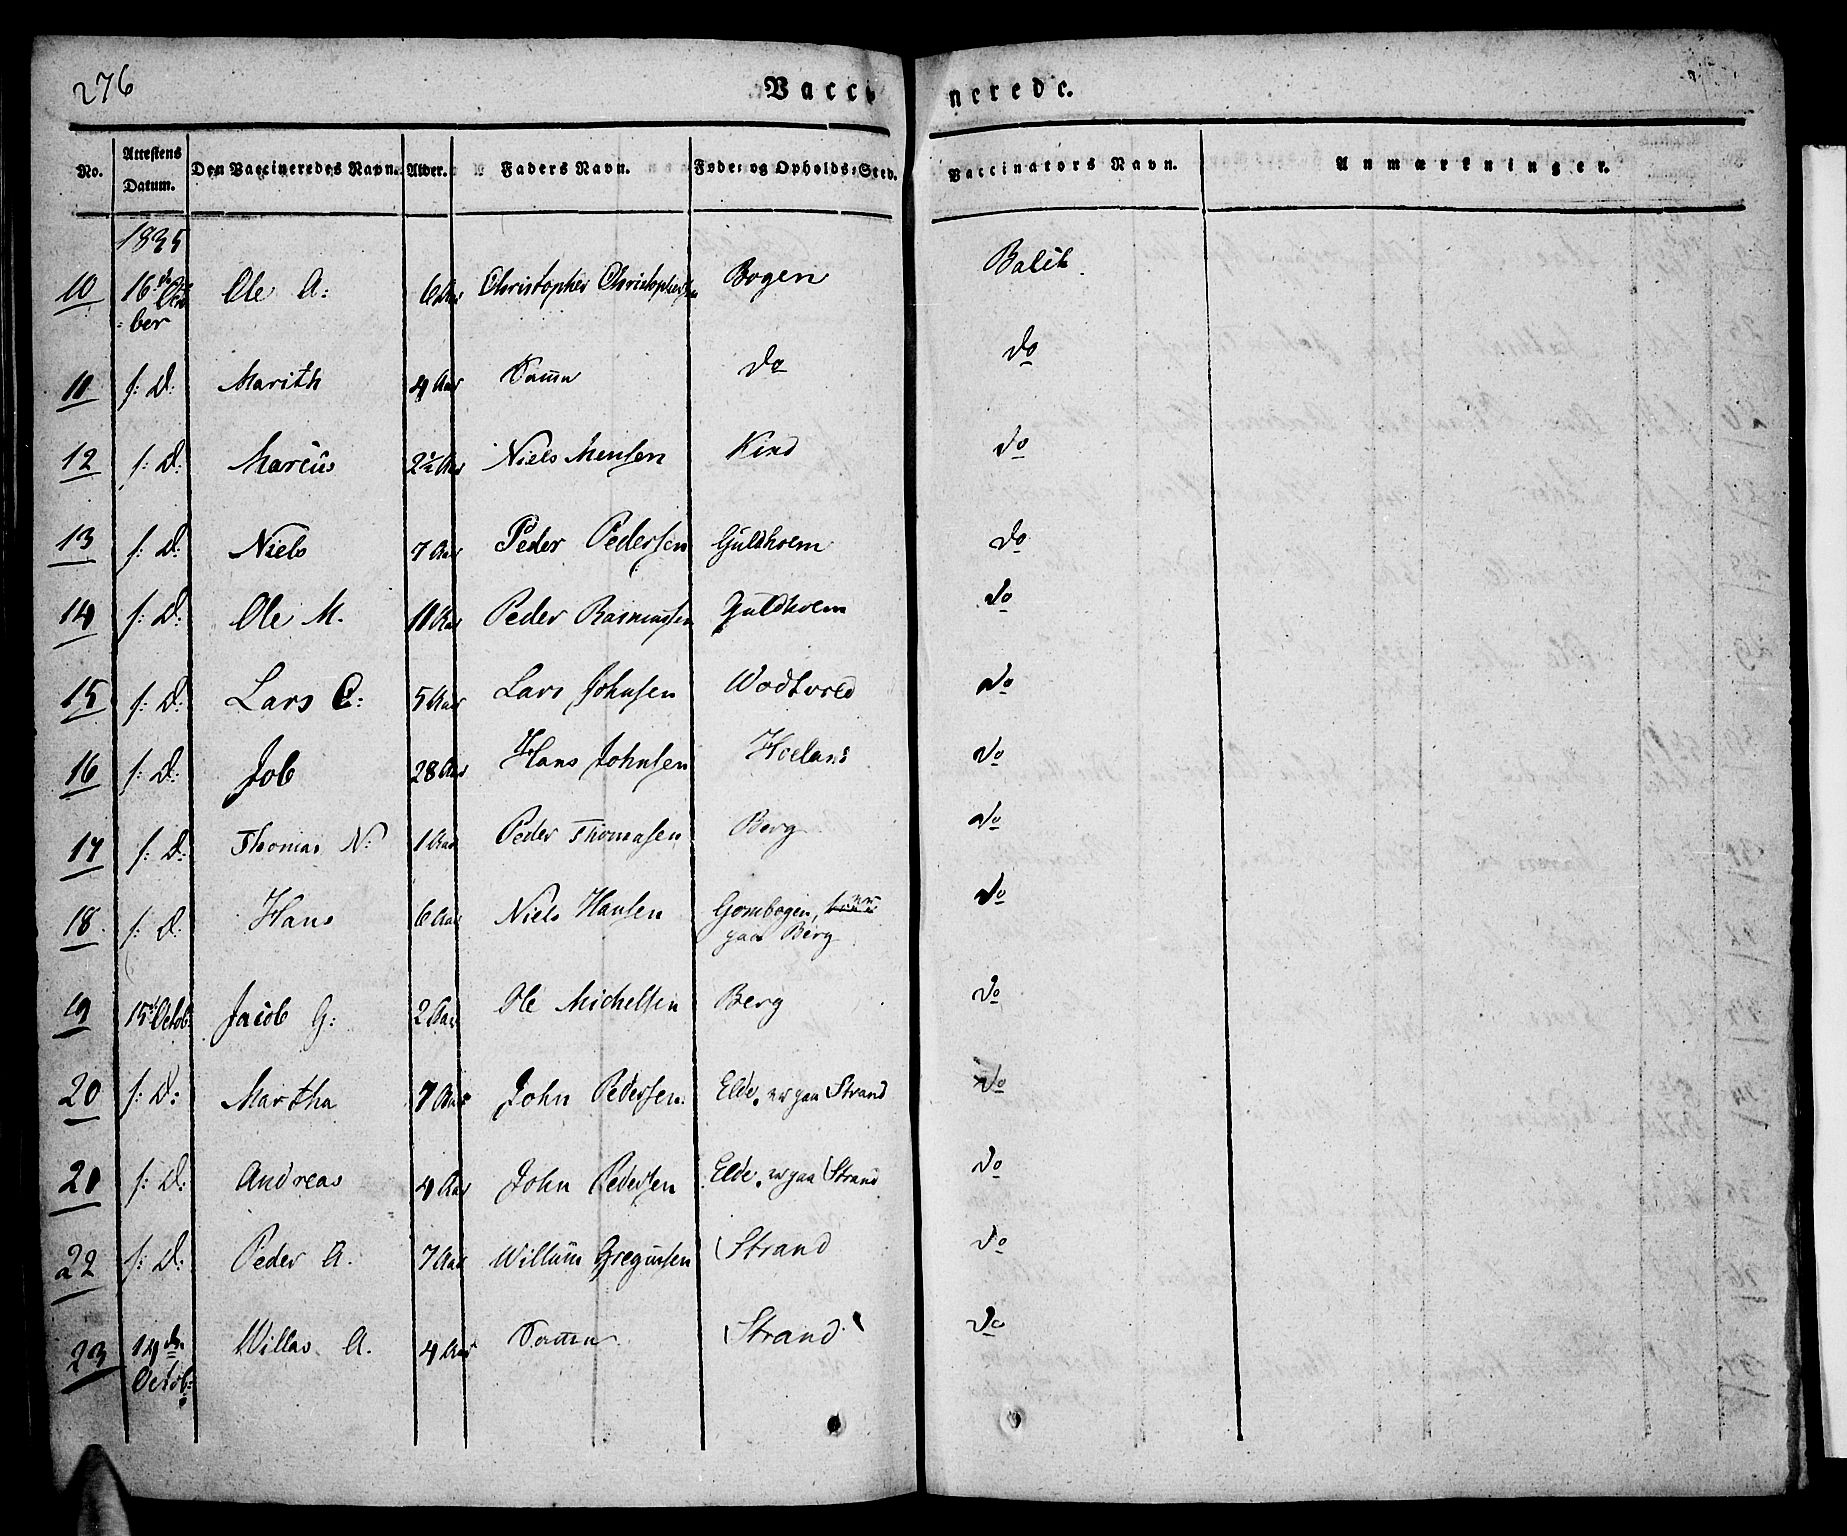 276
Vaccinerede.
No.
Attestens Datum.
Den Vaccineredes Navn.
Alder.
Faders Navn.
Føde- og Opholds-Sted.
Vaccinators Navn.
Anmærkninger.
1835
10 16de Octo=ber Ole A: 6 Aar Christopher Christophersen Bogen
11 s: D: Marith 4 Aar Samme Do Do
12 s: D: Marcus 2½ Aar Niels Mensen Kind Do
13 s: D: Niels 7 Aar Peder Pedersen Guldholm Do
14 s: D: Ole M. 11 Aar Peder Rasmussen Guldholm Do
15 s: D: Lars C: 5 Aar Lars Johnsen Do
16 s: D: Job 28 Aar Hans Johnsen Do
17 s: D: Thomas N: 1 Aar Peder Thomasen Berg Do
18 s: D: Hans 6 Aar Niels Hansen Gombogen,
paa Berg Do
19 15de Octob: Jacob G: 2 Aar Ole Michelsen Berg Do
20 s: D: Martha 7 Aar John Pedersen Elde. nu paa Strand Do
21 s: D: Andreas 4 Aar John Pedersen Elde. nu paa Strand Do
22 s: D: Peder A. 7 Aar Willum Gregussen Strand Do
23 14de Octob: Willas A. 4 Aar Samme Strand Do